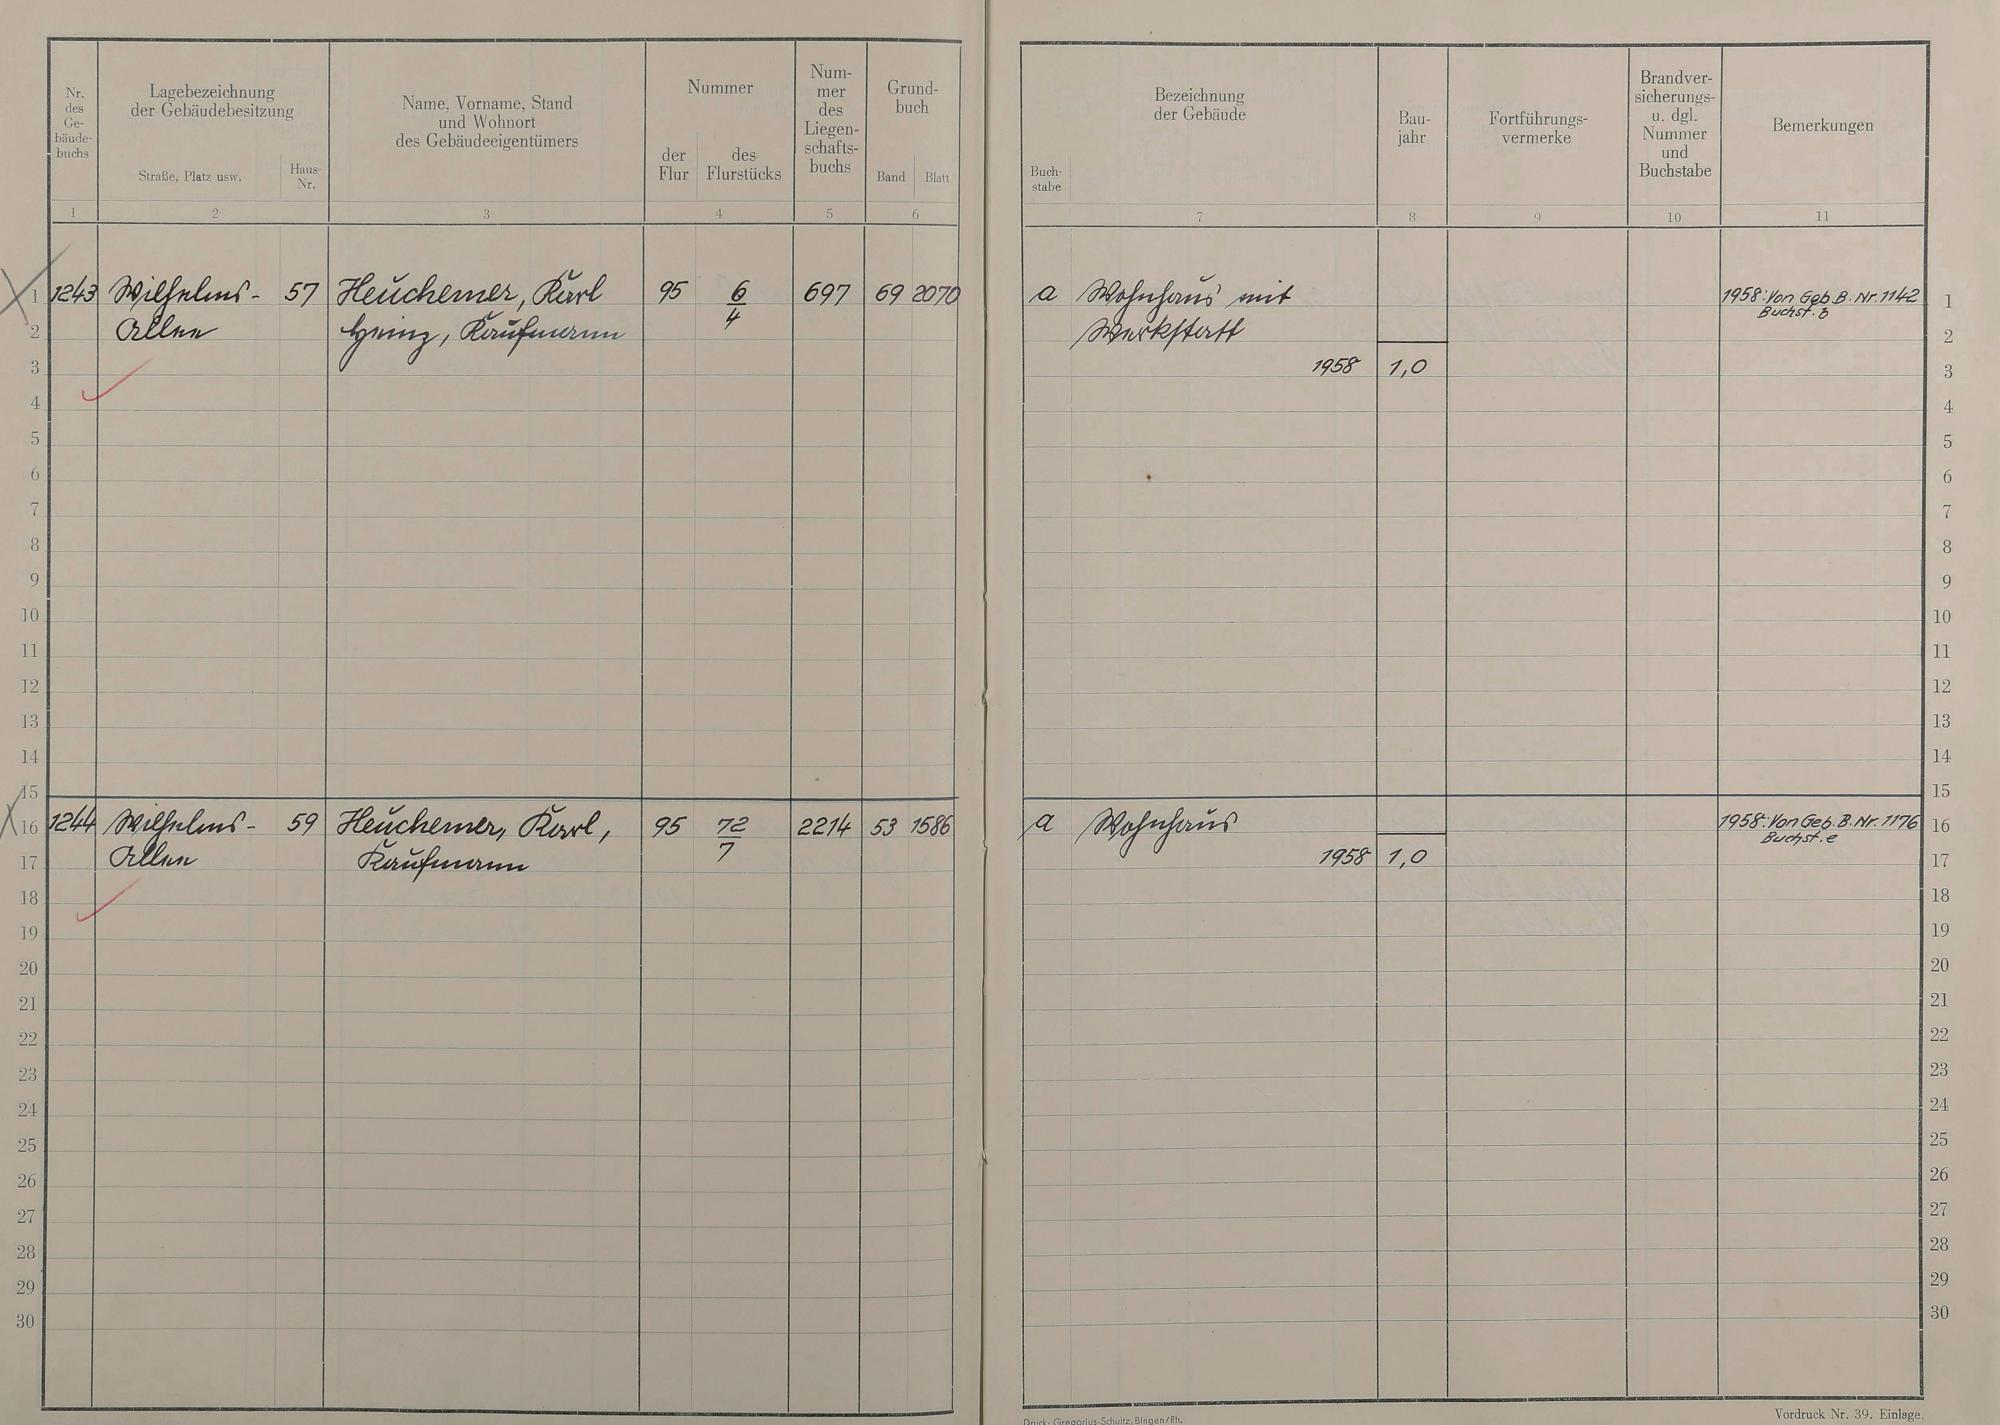 Nr.
des
Ge-
bäude-
buchs
Lagebezeichnung
der Gebäudebesitzung
Straße, Platz usw.
Haus-
Nr.
Name, Vorname, Stand
und Wohnort
des Gebäudeeigentümers
Nummer
der
Flur
des
Flurstücks
Num-
mer
des
Liegen-
schafts-
buchs
Grund-
buch
Band
Blatt
1 2 3 4 5 6
Buch-
stabe
Bezeichnung
der Gebäude
Bau-
jahr
Fortführungs-
vermerke
Brandver-
sicherungs-
u. dgl.
Nummer
und
Buchstabe
Bemerkungen
7 8 9 10 11
1 1243 Wilhelms- 57 Heuchemer, Karl 95 6/4 697 69 2070 a Wohnhaus mit 1958: Von Geb. B. Nr. 1142 1
Buchst. b
2 Allee Heinz, Kaufmann Werkstatt 2
3 1958 1,0 3
4 4
5 5
6 6
7 7
8 8
9 9
10 10
11 11
12 12
13 13
14 14
15 15
16 1244 Wilhelms- 59 Heuchemer, Karl, 95 72/7 2214 53 1586 a Wohnhaus 1958: Von Geb. B. Nr. 1176 16
Buchst. e
17 Allee Kaufmann 1958 1,0 17
18 18
19 19
20 20
21 21
22 22
23 23
24 24
25 25
26 26
27 27
28 28
29 29
30 30
Druck: Gregorius-Schultz, Bingen/Rh.
Vordruck Nr. 39. Einlage.